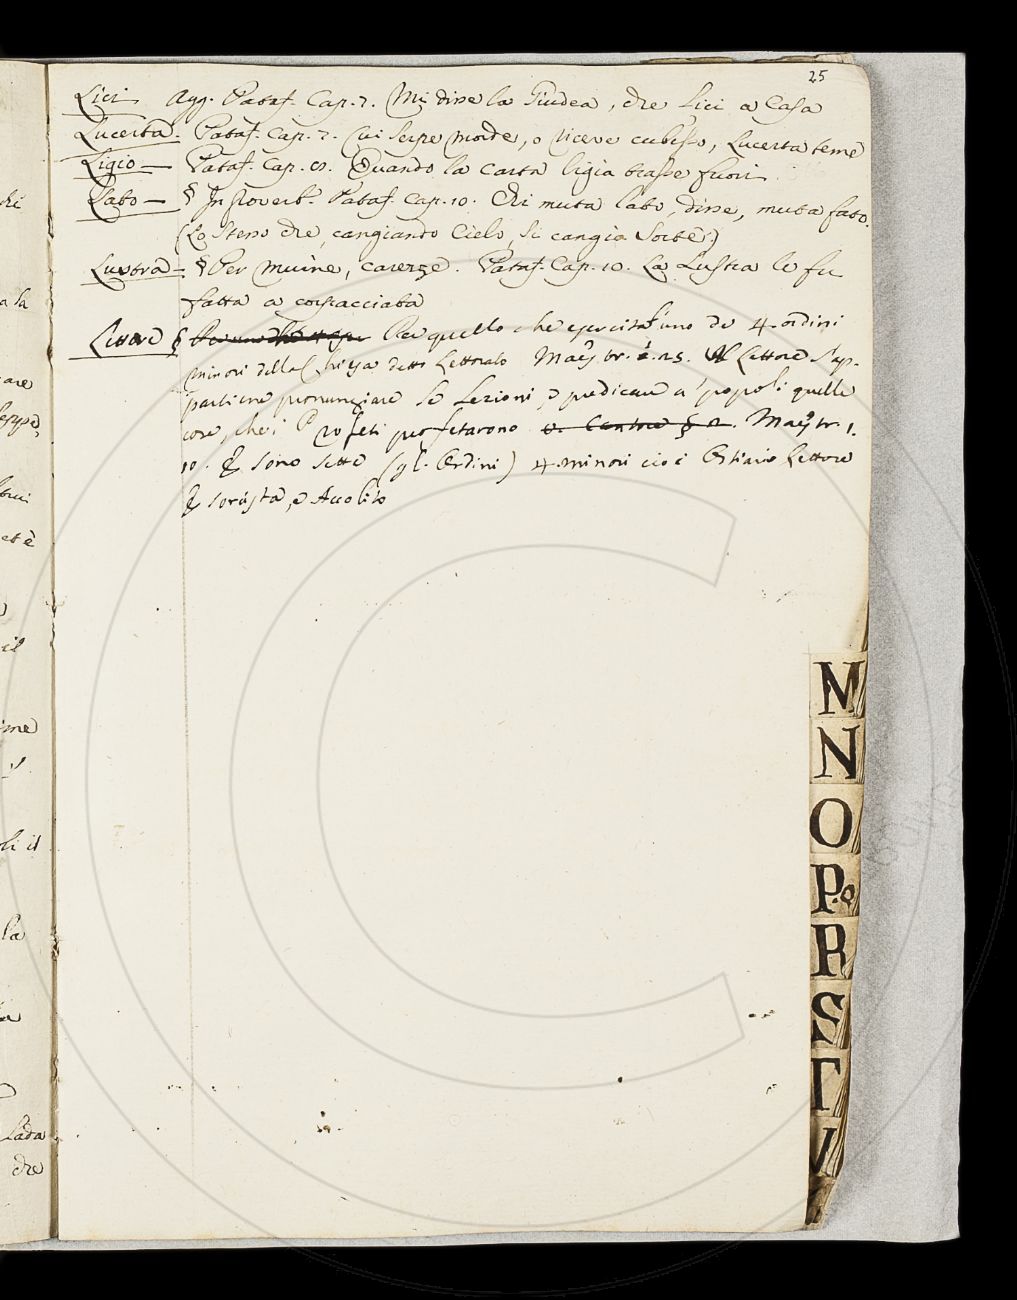 25
Lici. Agg. Pataf. Cap. 7. Mi disse la Giudea, che lici a Casa
Lucerta. Pataf. Cap. 7. Cui Serpe morde, o riceve, Lucerta teme
Ligio — Pataf. Cap. Quando la carta ligia trasse fuori
Lato — § In Proverb.° Pataf. Cap. 10. Chi muta lato, disse, muta fato.
(Lo stesso che, cangiando Cielo, si cangia Sorte.)
Lustra — § Per Moine, carezze. Pataf. Cap. 10. La Lustra le fu
fatta a
Lettore § Per quello che esercita uno de 4. ordini
minori della Chiesa detto Lettorato Maestr. 2. 25. Al Lettore s'ap-
partiene pronunziare le Lezioni, e predicare a' popoli quelle
cose, che i Profeti profetarono Maestr. 1.
10. E sono sette (gl. Ordini) 4. minori cioè Ostiario Lettore
E sorcista, e Accolito
M
N
O
P.Q
R
S
T
V